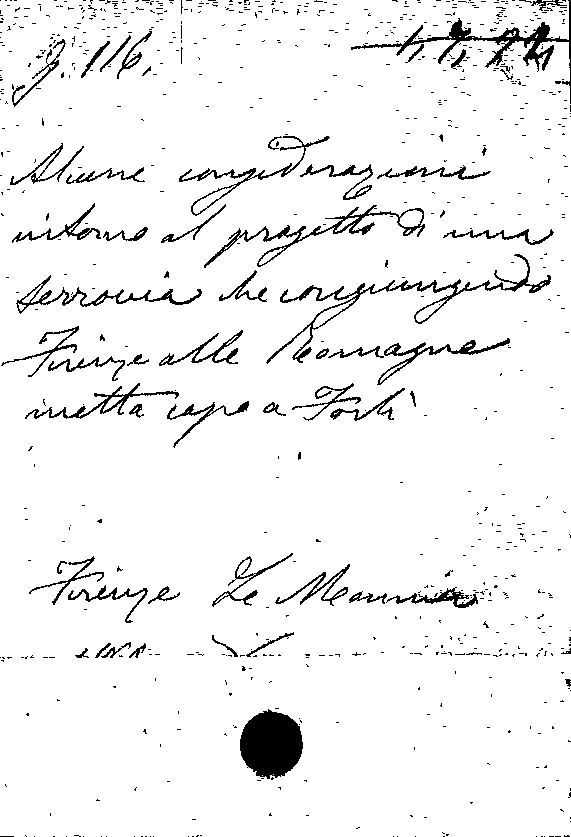 g. 116.
4, 7, 24
Alcune considerazioni
intorno al progetto di una
ferrovia che congiungendo
Firenze alle Romagne
metta capo a Forlì
Firenze Le Monnier